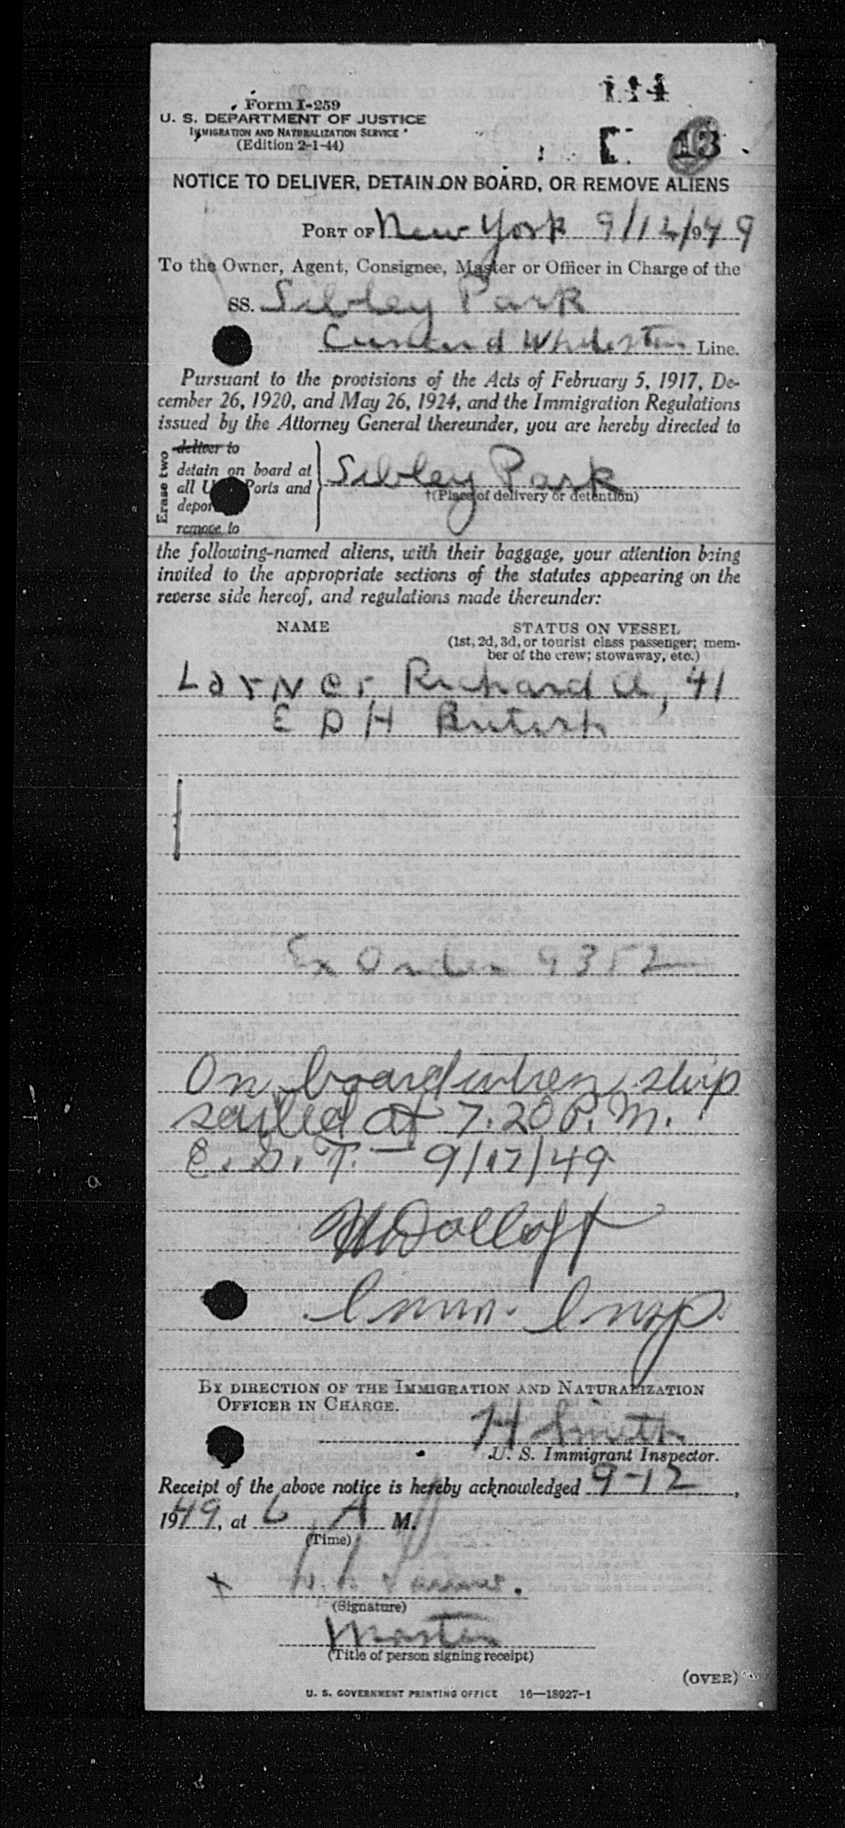 Form I-259
U. S. DEPARTMENT OF JUSTICE
IMMIGRATION AND NATURALIZATION SERVICE
(Edition 2-1-44)
13
NOTICE TO DELIVER, DETAIN ON BOARD, OR REMOVE ALIENS
PORT OF New York 9/12/1949
To the Owner, Agent, Consignee, Master or Officer in Charge of the
SS. Sibley Park
Cunard Line.
Pursuant to the provisions of the Acts of February 5, 1917, De-
cember 26, 1920, and May 26, 1924, and the Immigration Regulations
issued by the Attorney General thereunder, you are hereby directed to
Erase two
deliver to
detain on board at
all Ports and
remove to
Sibley Park
†(Place of delivery or detention)
the following-named aliens, with their baggage, your attention being
invited to the appropriate sections of the statutes appearing on the
reverse side hereof, and regulations made thereunder:
NAME STATUS ON VESSEL
(1st, 2d, 3d, or tourist class passenger; mem-
ber of the crew; stowaway, etc.)
Larner Richard A, 41
E D H British
Ex Order 9352
On board when ship
sailed at 7.20 P.M.
E.S.T. — 9/17/49
Imm. Insp.
BY DIRECTION OF THE IMMIGRATION AND NATURALIZATION
OFFICER IN CHARGE.
H Smith
U. S. Immigrant Inspector.
Receipt of the above notice is hereby acknowledged 9-12,
1949, at 6 A M.
(Time)
x
(Signature)
Master
(Title of person signing receipt)
(OVER)
U. S. GOVERNMENT PRINTING OFFICE 16—18927-1